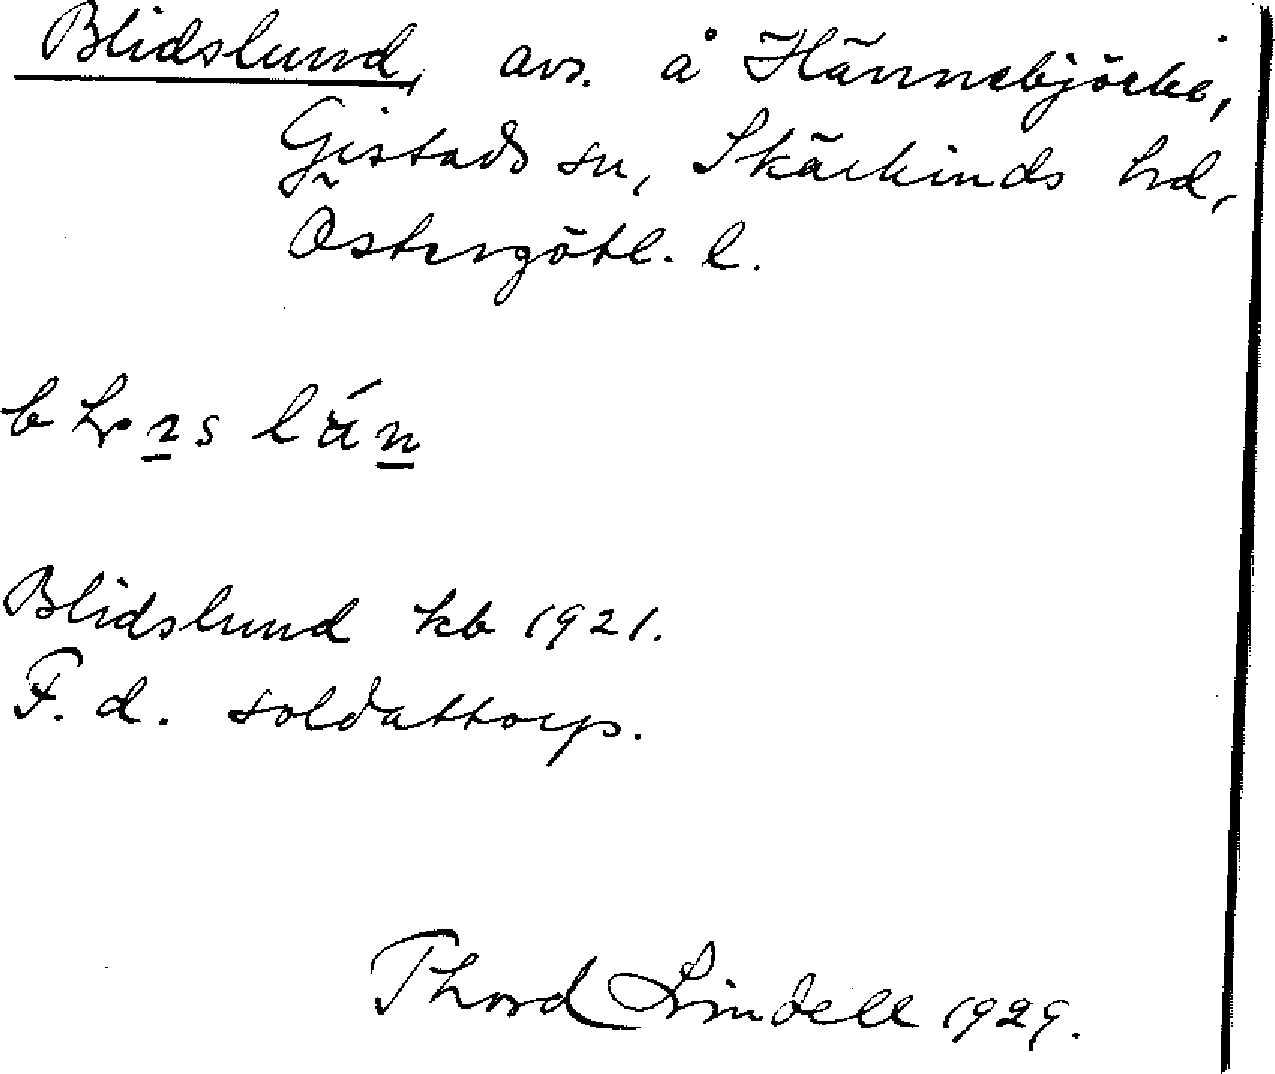 Blidslund, avs. å Hännebjörke,
Gistads sn, Skärkinds hd,
Östergötl. l.
Blidslund kb 1921.
F. d. soldattorp.
Thord Lindell 1929.